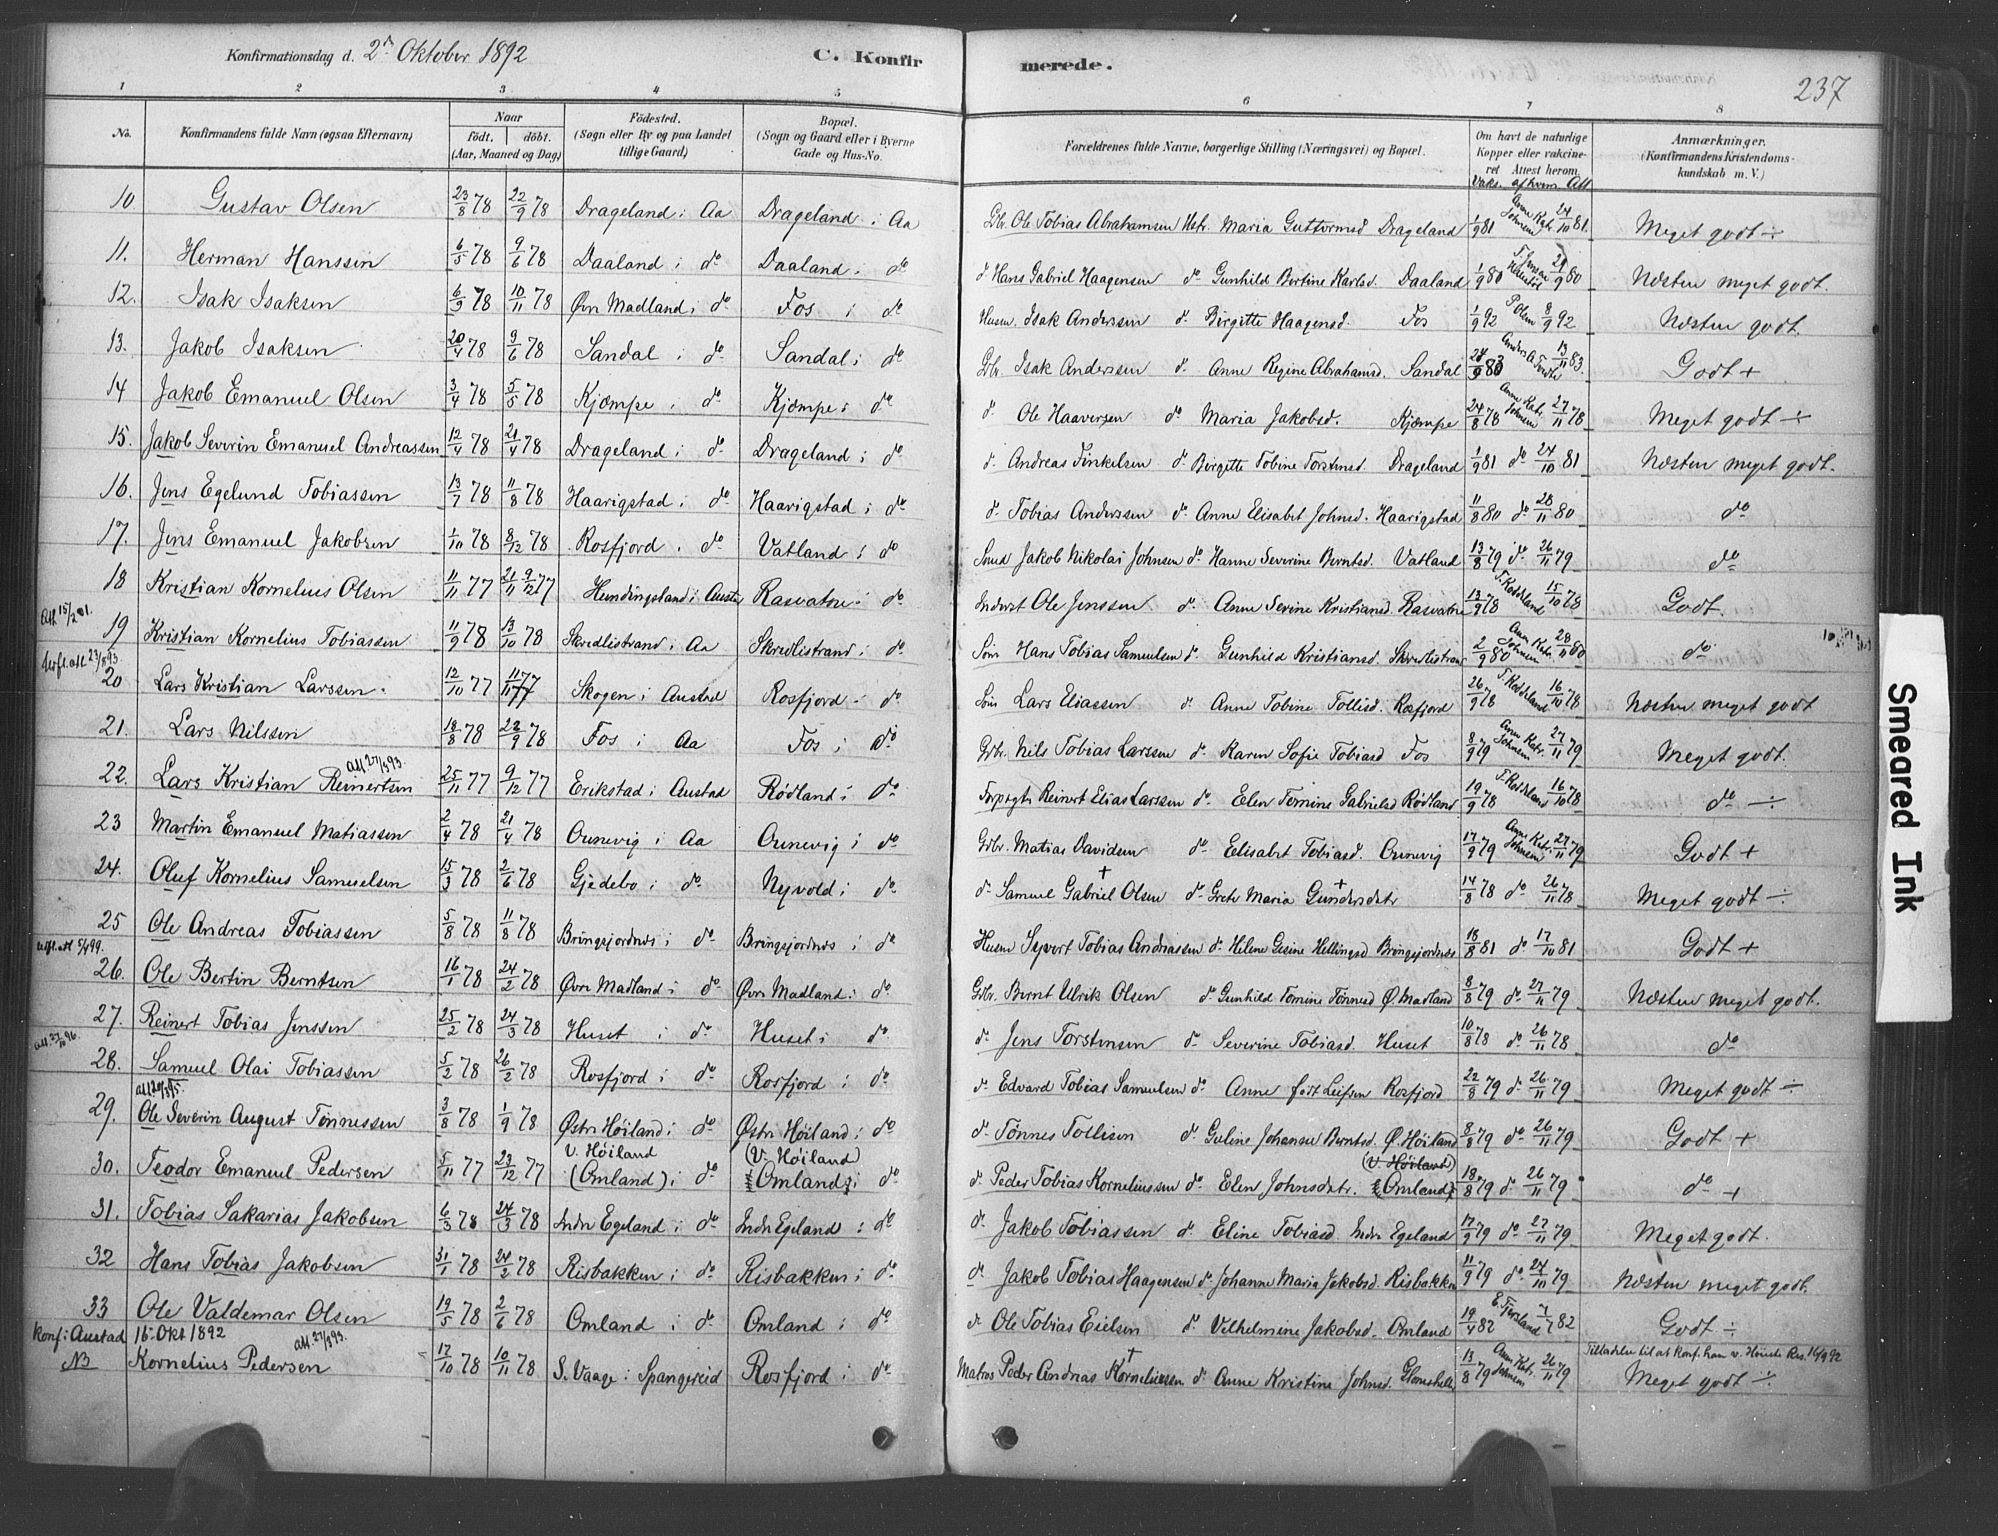 Konfirmationsdag d. 2den Oktober 1892 C. Konfirmerede. 237
1 2 3 4 5 6 7 8
No. Konfirmandens fulde Navn (ogsaa Efternavn) Naar født. døbt. (Aar, Maaned og Dag) Fødested. (Sogn eller By og paa Landet tillige Gaard) Bopæl. (Sogn og Gaard eller i Byerne Gade og Hus-No. Forældrenes fulde Navne, borgerlige Stilling (Næringsvei) og Bopæl. Om havt de naturlige Kopper eller vakcineret Attest herom. Anmærkninger. (Konfirmandens Kristendomskundskab m. V.)
Vaks. af hvem Att
10 Gustav Olsen 23/8 78 22/9 78 Drageland i Aa Drageland i Aa Gbr. Ole Tobias Abrahamsen Hstr. Maria Guttormsd Drageland 1/9 81 Anne Katr. Johnsen 24/10 81. Meget godt ÷
11. Herman Hanssen 6/5 78 9/6 78 Daaland i do Daaland i do do Hans Gabriel Haagensen do Gunhild Bertine Karlsd. Daaland 1/9 80 29/9 80 Næsten meget godt.
12. Isak Isaksen 6/9 78 10/11 78 Øvr Madland i do Fos i do Husm. Isak Andersen do Birgitte Haagensd. Fos 1/9 92 P Olsen 8/9 92 Næsten godt.
13. Jakob Isaksen 20/4 78 9/6 78 Sandal i do Sandal i do Gbr. Isak Anderssen do Anne Regine Abrahamsd. Sandal 24/9 83 13/11 83. Godt +
14 Jakob Emanuel Olsen 3/4 78 5/5 78 Kjæmpe i do Kjæmpe i do do Ole Haaversen do Maria Jakobsd. Kjæmpe 24/8 78 Anne Katr. Johnsen 27/11 78 Meget godt ÷
15. Jakob Severin Emanuel Andreassen 12/4 78 21/4 78 Drageland i do Drageland i do do Andreas Finkelsen do Birgitte Tobine Torstensd Drageland 1/9 81 do 24/10 81 Næsten meget godt.
16. Jens Egelund Tobiassen 13/7 78 11/8 78 Haarigstad i do Haarigstad i do do Tobias Anderssen do Anne Elisabet Johnsd. Haarigstad 11/8 80 do 28/11 80 do
17. Jens Emanuel Jakobsen 1/10 78 8/12 78 Rosfjord i do Vatland i do Smed Jakob Nikolai Johnsen do Hanne Severine Berntsd. Vatland 13/8 79 do 26/11 79 do
18 Kristian Kornelius Olsen 11/11 77 21/11 9/12 77 Hundingsland i Austad Rasvatne i do Inderst Ole Jenssen do Anne Sevine Kristiansd Rasvatne 13/9 78 T. Roddeland 15/10 78 Godt.
Att. 15/2 01.
19 Kristian Kornelius Tobiassen 11/9 78 13/10 78 Skredlistrand i Aa Skredlistrand i do Søm Hans Tobias Samuelsen do Gunhild Kristiansd. Skredlistrand 2/9 80 Anne Katr. Johnsen 28/11 80 do
Utfl. att 23/8 93.
20 Lars Kristian Larssen. 12/10 77 11/11 77 Skogen i Austad Rosfjord i do Søm Lars Eliassen do Anne Tobine Tollisd. Rosfjord 26/9 78 T. Roddeland 16/10 78 Næsten meget godt
21. Lars Nilssen 18/8 78 22/9 78 Fos i Aa Fos i do Gbr. Nils Tobias Larssen do Karen Sofie Tobiasd Fos 8/9 79 Anne Katr. Johnsen 27/11 79 Meget godt.
22. Lars Kristian Reinertsen att 27/3 93. 25/11 77 9/12 77 Erikstad i Austad Rødland i do Forpagtr Reinert Elias Larssen do Elen Tomine Gabrielsd Rødland 19/9 78 T. Roddeland 16/10 78 do ÷
23 Martin Emanuel Matiassen 2/4 78 21/4 78 Ounevig i Aa Ounevig i do Gbr. Matias Davidsen do Elisabet Tobiasd. Ounevig 17/9 79 Anne Katr. Johnsen 27/11 79 Godt +
24. Oluf Kornelius Samuelsen 15/3 78 2/6 78 Gjedebo i do Nyvold i do do Samuel Gabriel Olsen + do Grete Maria Gundersdatr + 14/8 78 do 26/11 78 Meget godt ÷
25 Ole Andreas Tobiassen 5/8 78 11/8 78 Bringsjordnes i do Bringsjordnes i do Husm Syvert Tobias Andreassen do Helene Gesine Hellingsd Bringsjordnes 18/8 81 do 17/10 81 Godt +
Utfl. att 5/4 99.
26. Ole Bertin Berntsen 16/1 78 24/2 78 Øvr Madland i do Øvr Madland i do Gbr. Bernt Ulrik Olsen do Gunhild Tomine Tønnesd Ø. Madland 8/8 79 do 27/11 79 Næsten meget godt.
27. Reinert Tobias Jenssen 25/2 78 24/3 78 Huset i do Huset i do do Jens Torstensen do Severine Tobiasd. Huset 10/8 78 do 26/11 78 do
att. 27/10 96.
28. Samuel Olai Tobiassen 5/2 78 26/2 78 Rosfjord i do Rosfjord i do do Edvard Tobias Samuelsen do Anne født Leifsen Rosfjord 22/8 79 do 26/11 79 Meget godt ÷
29. Ole Severin August Tønnessen 3/8 78 1/9 78 Østr Høiland i do Østr Høiland i do do Tønnes Tollisen do Guline Johanne Berntsd. Ø. Høiland 8/8 79 do 26/11 79 Godt +
30. Teodor Emanuel Pedersen 5/11 77 23/12 77 V. Høiland (Omland) i do (V. Høiland) (Omland) i do do Peder Tobias Korneliussen do Elen Johnsdatr. (V. Høiland) (Omland) 18/8 79 do 26/11 79 do +
31. Tobias Sakarias Jakobsen 6/3 78 24/3 78 Indr Egeland i do Indr Egeland i do do Jakob Tobiassen do Eline Tobiasd Indr Egeland 17/9 79 do 27/11 79 Meget godt.
32 Hans Tobias Jakobsen 31/1 78 24/2 78 Risbakken i do Risbakken i do do Jakob Tobias Haagensen do Johanne Maria Jakobsd. Risbakken 11/9 79 do 24/10 79 Næsten meget godt.
33 Ole Valdemar Olsen 19/5 78 2/6 78 Omland i do Omland i do do Ole Tobias Eielsen do Vilhelmine Jakobsd. Omland 19/4 82 E. Fjersland 7/7 82 Godt ÷
konf. i Austad 16. Okt 1892 att. 27/3 93. Tilladelse til at konf. ham v. Res. 16/9 92
NB Kornelius Pedersen 17/10 78 10/11 78 S. Vaage i Spangereid Rosfjord i do Matros Peder Andreas Korneliussen + do Anne Kristine Johnsd. 13/8 79 Anne Katr. Johnsen 26/11 79 Meget godt ÷
Smeared Ink